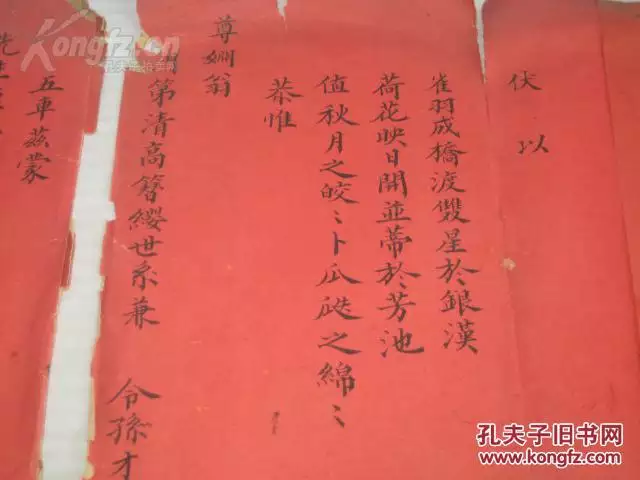 伏以
雀羽成橋渡雙星於銀漢
荷花映日開並蒂於芳池
值秋月之皎〻卜瓜瓞之綿〻
恭惟
尊姻翁
第清高簪纓世系兼 令孫才
五車兹蒙
先生
Kongfz.com
孔夫子拍卖网
孔夫子旧书网
www.kongfz.com